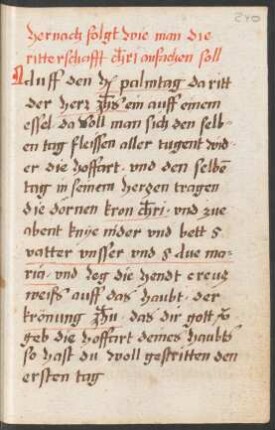 240
hernach folgt wie man die
ritterschafft chri ansachen soll
Auff den h palmtag da ritt
der herr ihs ein auff einem
essel da soll man sich den selb-
en tag fleissen aller tugent wid-
er die hoffart · vnd den selbē
tag in seinem hertzen tragen
die dörnen kron chri · vnd zue
abent knye nider vnd bett 5
vatter vnsser vnd 5 aue ma-
ria · vnd leg die hendt creutz
weiß auff das haubt · der
krönung ihu · das dir gott v̄
geb die hoffart deines haubts
so hast du woll gestritten den
ersten tag